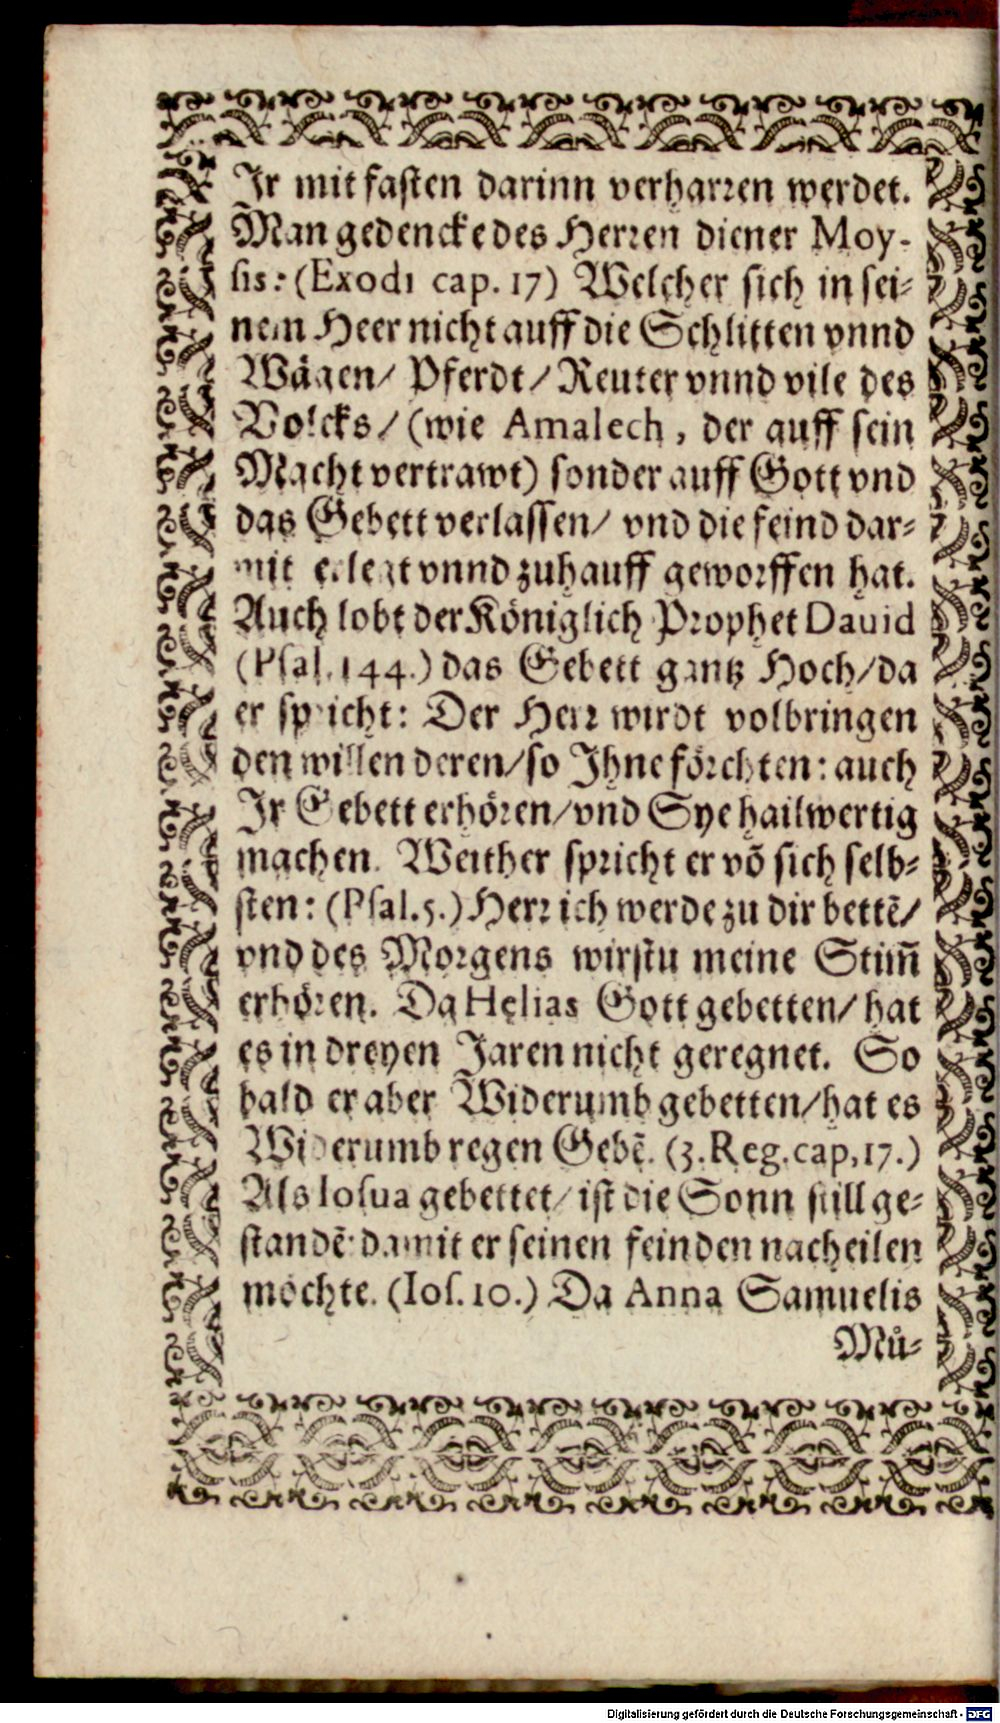 Ir mit fasten darinn verharren werdet.
Man gedencke des Herren diener Moy-
sis: (Exodi cap. 17) Welcher sich in sei-
nem Heer nicht auff die Schlitten vnnd
Wägen/ Pferdt/ Reuter vnnd vile des
Volcks/ (wie Amalech, der auff sein
Macht vertrawt) sonder auff Gott vnd
das Gebett verlassen/ vnd die feind dar-
mit erlegt vnnd zuhauff geworffen hat.
Auch lobt der Königlich Prophet Dauid
(Psal. 144.) das Gebett gantz Hoch/ da
er spricht: Der Herr wirdt volbringen
den willen deren/ so Ihne förchten: auch
Ir Gebett erhören/ vnd Sye hailwertig
machen. Weither spricht er võ sich selb-
sten: (Psal. 5.) Herr ich werde zu dir bettẽ/
vnd des Morgens wirstu meine Stim̃
erhören. Da Helias Gott gebetten/ hat
es in dreyen Jaren nicht geregnet. So
bald er aber Widerumb gebetten/ hat es
Widerumb regen Gebẽ. (3. Reg. cap, 17.)
Als Iosua gebettet/ ist die Sonn still ge-
standẽ damit er seinen feinden nacheilen
möchte. (Ios. 10.) Da Anna Samuelis
Mů-
Digitalisierung gefördert durch die Deutsche Forschungsgemeinschaft - DFG